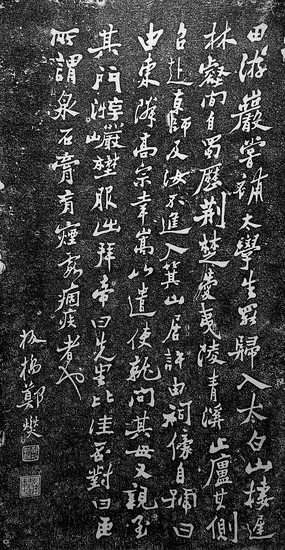 田游巖嘗補太學生罷歸入太白山棲遲
林壑間自蜀歷荊楚愛夷陵青溪止廬其側
召赴京師及汝不進入箕山居許由祠傍自號曰
由東隣高宗幸嵩山遣使就問其母又親至
其門游巖埜服出拜帝曰先生比佳否對曰臣
所謂泉石膏肓煙霞痼疾者也
板橋鄭燮